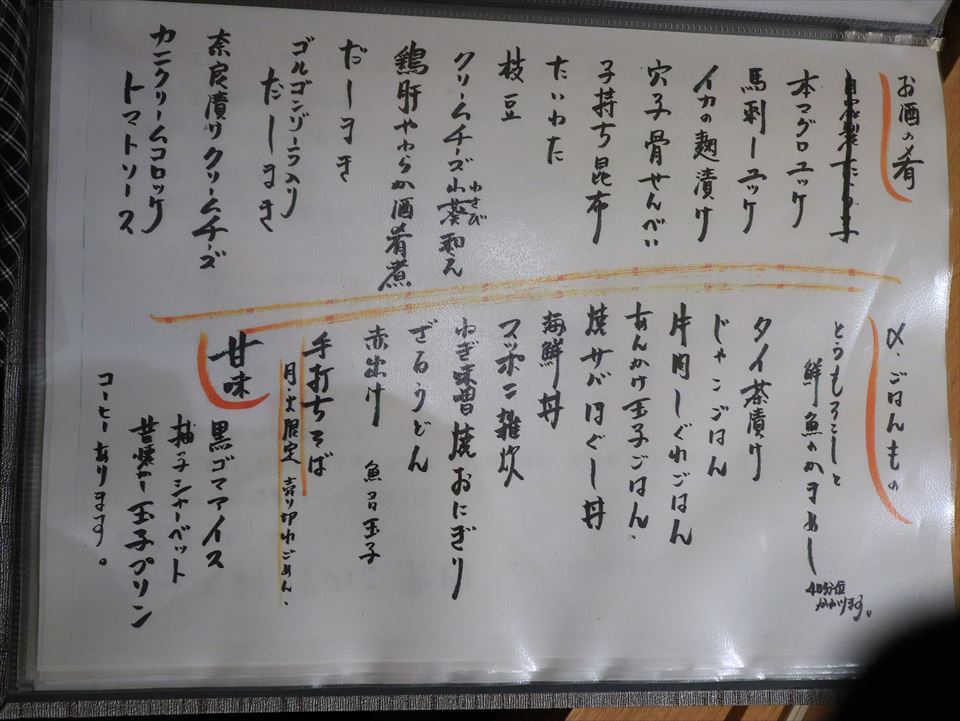 お酒の肴
本マグロユッケ
馬刺しユッケ
イカの麹漬け
穴子骨せんべい
子持ち昆布
たいわた
枝豆
クリームチーズ山葵和え
わさび
鶏肝やわらか酒肴煮
だしまき
ゴルゴンゾーラ入り
だしまき
奈良漬クリームチーズ
カニクリームコロッケ
トマトソース
〆・ごはんもの
とうもろこしと
鮮魚のかまめし
40分位
かかります。
タイ茶漬け
じゃこごはん
片月しぐれごはん
あんかけ玉子ごはん
焼サバほぐし丼
海鮮丼
スッポン雑炊
ねぎ味噌焼おにぎり
ざるうどん
赤出汁
魚 玉子
手打ちそば
月・火限定 売り切れごめん
甘味
黒ゴマアイス
柚子シャーベット
昔懐かし玉子プリン
コーヒーあります。